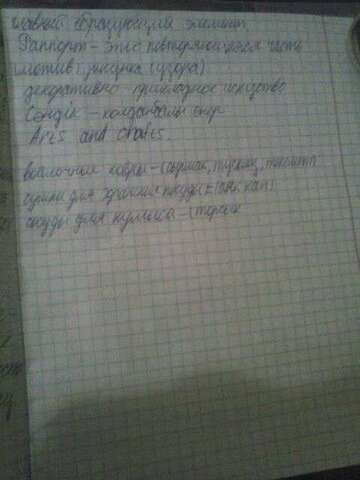 главный образующий элемент
Раппорт - это повторяющаяся часть
мотив рисунка (узора)
декоративно прикладное искуство
Сәндік - колданбалы өнер
Arts and crafts
войлочные ковры - (сырмак, тускиіз, текемет
сумки для хранения посуды (аяк кап)
сосуды для кумыса - (торсык